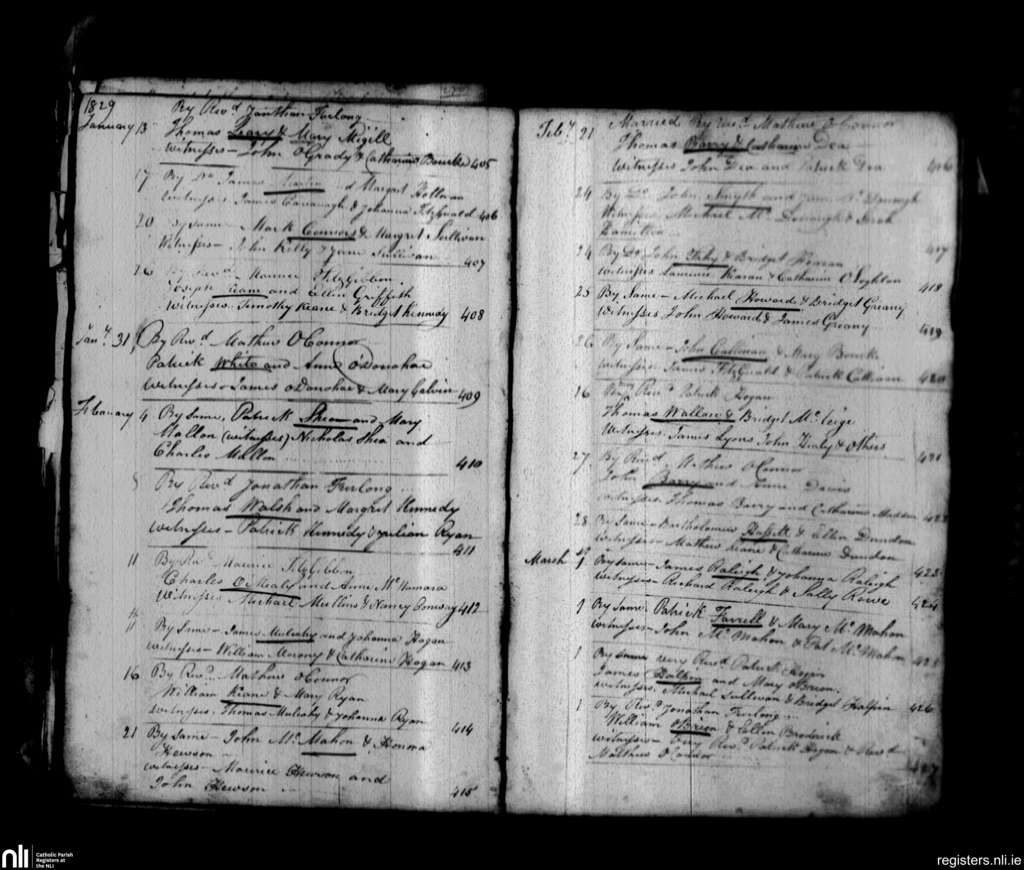 1829
January 13 By Revd Jonathan Furlong
Thomas Leary & Mary Migill
Witnesses - John O Grady & Catharine Bourke 405
17 By Do James and Margret Hollivan
Witnesses James Cavanagh & Johanna Fitzgerald 406
20 By Same - Mark Connors & Margret Sullivan
Witnesses - John Kelly & Jane Sullivan 407
26 By Revd Maurice Fitzgibbon
Joseph and Ellen Griffith
Witnesses - Timothy Keane & Bridget Kennedy 408
Jany 31 By Revd Mathew O Connor
Patrick White and Anne O'Donohoe
Witnesses - James O Donohoe & Mary Galvin 409
February 4 By Same, Patrick Shea and Mary
Mallon (witnesses) Nicholas Shea and
Charles Mallon 410
8 By Revd Jonathan Furlong
Thomas Walsh and Margret Kennedy
Witnesses - Patrick Kennedy & Julian Ryan 411
11 By Revd Maurice Fitzgibbon
Charles O Mealy and Anne Mc Namara
Witnesses Michael Mullins & Nancy Conway 412
14 By Same - James Mulcahy and Johanna Hogan
Witnesses - William Merony & Catharine Hogan 413
16 By Revd Mathew O Connor
William Keane & Mary Ryan
Witnesses, Thomas Mulcahy & Johanna Ryan 414
21 By Same - John Mc Mahon & Honora
Hewson
Witnesses - Maurice Hewson and
John Hewson 415
Feby 21 Married By Revd Mathew O Connor
Thomas Barry & Catharine Dea
Witnesses John Dea and Patrick Dea 416
24 By Do John Smyth and Jane Mc Donough
Witnesses Michael Mc Donough & Sarah
Hamilton 417
24 By Do John Fahy & Bridget Kearan
Witnesses Laurence Kearan & Catharine O Loghlen 418
25 By Same - Michael Howard & Bridget Greany
Witnesses John Howard & James Greany 419
26 By Same - John Callinan & Mary Bourke
Witnesses James Fitzgerald & Patrick Callinan 420
16 By Revd Patrick Hogan
Thomas Wallace & Bridget Mc Teige
Witnesses - James Lyons John Healy & Others 421
27 By Revd Mathew O Connor
John Barry and Anne Davis
Witnesses Thomas Barry and Catharine Madden 422
28 By Same - Bartholomew Hassett & Ellen Dundon
Witnesses - Mathew Keane & Catharine Dundon 423
March 1 By same - James Raleigh & Johanna Raleigh
Witnesses - Richard Raleigh & Sally Rowe 424
1 By Same, Patrick Farrell & Mary Mc Mahon
Witnesses - John Mc Mahon & Pat Mc Mahon 425
1 By Same very Revd Patrick Hogan
James Halpin and Mary O Brien
Witnesses, Michael Sullivan & Bridget Halpin 426
1 By Revd Jonathan Furlong
William O Brien & Ellen Broderick
Witnesses - Very Revd Patrick Hogan & Revd
Mathew O Connor 427
nli
Catholic Parish
Registers at
the NLI
registers.nli.ie